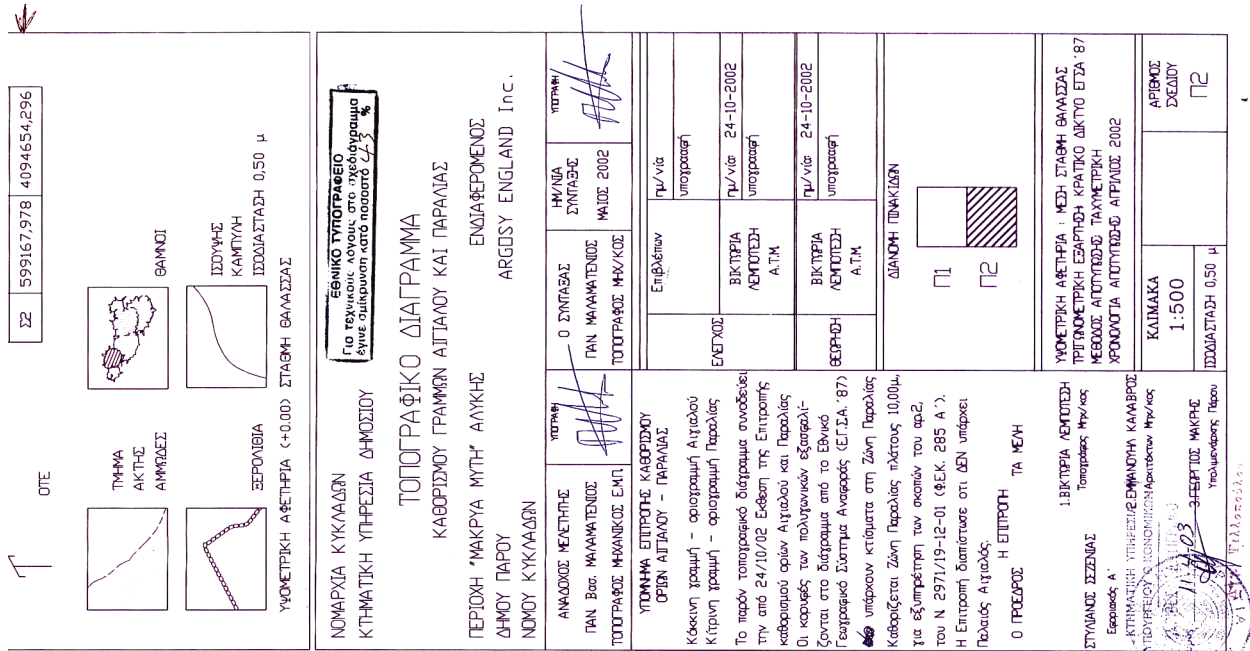 Σ2 599167,978 4094654,296
ΟΤΕ
ΤΜΗΜΑ
ΑΚΤΗΣ
ΑΜΜΩΔΕΣ
ΘΑΜΝΟΙ
ΞΕΡΟΛΙΘΙΑ
ΙΣΟΥΨΗΣ
ΚΑΜΠΥΛΗ
ΙΣΟΔΙΑΣΤΑΣΗ 0,50 μ
ΥΨΟΜΕΤΡΙΚΗ ΑΦΕΤΗΡΙΑ (+0.00) ΣΤΑΘΜΗ ΘΑΛΑΣΣΑΣ
ΝΟΜΑΡΧΙΑ ΚΥΚΛΑΔΩΝ
ΚΤΗΜΑΤΙΚΗ ΥΠΗΡΕΣΙΑ ΔΗΜΟΣΙΟΥ
ΕΘΝΙΚΟ ΤΥΠΟΓΡΑΦΕΙΟ
Για τεχνικούς λόγους στο σχεδιάγραμμα
έγινε σμίκρυνση κατά ποσοστό 43 %
ΤΟΠΟΓΡΑΦΙΚΟ ΔΙΑΓΡΑΜΜΑ
ΚΑΘΟΡΙΣΜΟΥ ΓΡΑΜΜΩΝ ΑΙΓΙΑΛΟΥ ΚΑΙ ΠΑΡΑΛΙΑΣ
ΠΕΡΙΟΧΗ "ΜΑΚΡΥΑ ΜΥΤΗ" ΑΛΥΚΗΣ
ΔΗΜΟΥ ΠΑΡΟΥ
ΝΟΜΟΥ ΚΥΚΛΑΔΩΝ
ΕΝΔΙΑΦΕΡΟΜΕΝΟΣ
ARGOSY ENGLAND Inc.
ΑΝΑΔΟΧΟΣ ΜΕΛΕΤΗΤΗΣ
ΠΑΝ. Βασ. ΜΑΛΑΜΑΤΕΝΙΟΣ
ΤΟΠΟΓΡΑΦΟΣ ΜΗΧΑΝΙΚΟΣ Ε.Μ.Π.
ΥΠΟΓΡΑΦΗ
Ο ΣΥΝΤΑΞΑΣ
ΠΑΝ. ΜΑΛΑΜΑΤΕΝΙΟΣ
ΤΟΠΟΓΡΑΦΟΣ ΜΗΧ/ΚΟΣ
ΗΜ/ΝΙΑ
ΣΥΝΤΑΞΗΣ
ΜΑΙΟΣ 2002
ΥΠΟΓΡΑΦΗ
ΥΠΟΜΝΗΜΑ ΕΠΙΤΡΟΠΗΣ ΚΑΘΟΡΙΣΜΟΥ
ΟΡΙΩΝ ΑΙΓΙΑΛΟΥ - ΠΑΡΑΛΙΑΣ
Κόκκινη γραμμή - οριογραμμή Αιγιαλού
Κίτρινη γραμμή - οριογραμμή Παραλίας
Το παρόν τοπογραφικό διάγραμμα συνοδεύει
την από 24/10/02 Εκθεση της Επιτροπής
καθορισμού ορίων Αιγιαλού και Παραλίας
Οι κορυφές των πολυγωνικών εξασφαλί-
ζονται στο διάγραμμα από το Εθνικό
Γεωγραφικό Σύστημα Αναφοράς (ΕΓ.Σ.Α. '87)
υπάρχουν κτίσματα στη Ζώνη Παραλίας
Καθορίζεται Ζώνη Παραλίας πλάτους 10,00μ,
για εξυπηρέτηση των σκοπών του αρ.2,
του Ν 2971/19-12-01 (Φ.Ε.Κ. 285 Α').
Η Επιτροπή διαπίστωσε οτι ΔΕΝ υπάρχει
Παλαιός Αιγιαλός.
Η ΕΠΙΤΡΟΠΗ
Ο ΠΡΟΕΔΡΟΣ ΤΑ ΜΕΛΗ
ΣΤΥΛΙΑΝΟΣ ΣΕΖΕΝΙΑΣ
Εφοριακός Α'
1.ΒΙΚΤΩΡΙΑ ΛΕΜΠΟΤΕΣΗ
Τοπογράφος Μηχ/κος
2.ΕΜΜΑΝΟΥΗΛ ΚΑΛΑΒΡΟΣ
Αρχιτέκτων Μηχ/κος
3.ΓΕΩΡΓΙΟΣ ΜΑΚΡΗΣ
Υπολιμενάρχης Πάρου
ΚΤΗΜΑΤΙΚΗ ΥΠΗΡΕΣΙΑ
ΥΠΟΥΡΓΕΙΟΥ ΟΙΚΟΝΟΜΙΚΩΝ
ΕΛΕΓΧΟΣ
Επιβλέπων
ημ/νία
υπογραφή
ΒΙΚΤΩΡΙΑ
ΛΕΜΠΟΤΕΣΗ
Α.Τ.Μ.
ημ/νία 24-10-2002
υπογραφή
ΘΕΩΡΗΣΗ
ΒΙΚΤΩΡΙΑ
ΛΕΜΠΟΤΕΣΗ
Α.Τ.Μ.
ημ/νία 24-10-2002
υπογραφή
ΔΙΑΝΟΜΗ ΠΙΝΑΚΙΔΩΝ
Π1
Π2
ΥΨΟΜΕΤΡΙΚΗ ΑΦΕΤΗΡΙΑ : ΜΕΣΗ ΣΤΑΘΜΗ ΘΑΛΑΣΣΑΣ
ΤΡΙΓΩΝΟΜΕΤΡΙΚΗ ΕΞΑΡΤΗΣΗ ΚΡΑΤΙΚΟ ΔΙΚΤΥΟ ΕΓΣΑ '87
ΜΕΘΟΔΟΣ ΑΠΟΤΥΠΩΣΗΣ ΤΑΧΥΜΕΤΡΙΚΗ
ΧΡΟΝΟΛΟΓΙΑ ΑΠΟΤΥΠΩΣΗΣ ΑΠΡΙΛΙΟΣ 2002
ΚΛΙΜΑΚΑ
1:500
ΙΣΟΔΙΑΣΤΑΣΗ 0,50 μ
ΑΡΙΘΜΟΣ
ΣΧΕΔΙΟΥ
Π2